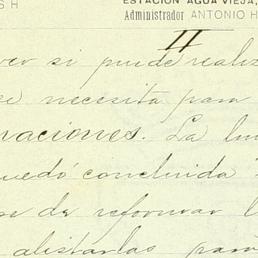 S H
ESTACIÓN AGUA VIEJA,
Administrador ANTONIO H
II
ver si puede realiz
se necesita para
raciones. La lin
quedó concluida
se de reformar l
alistarlas para